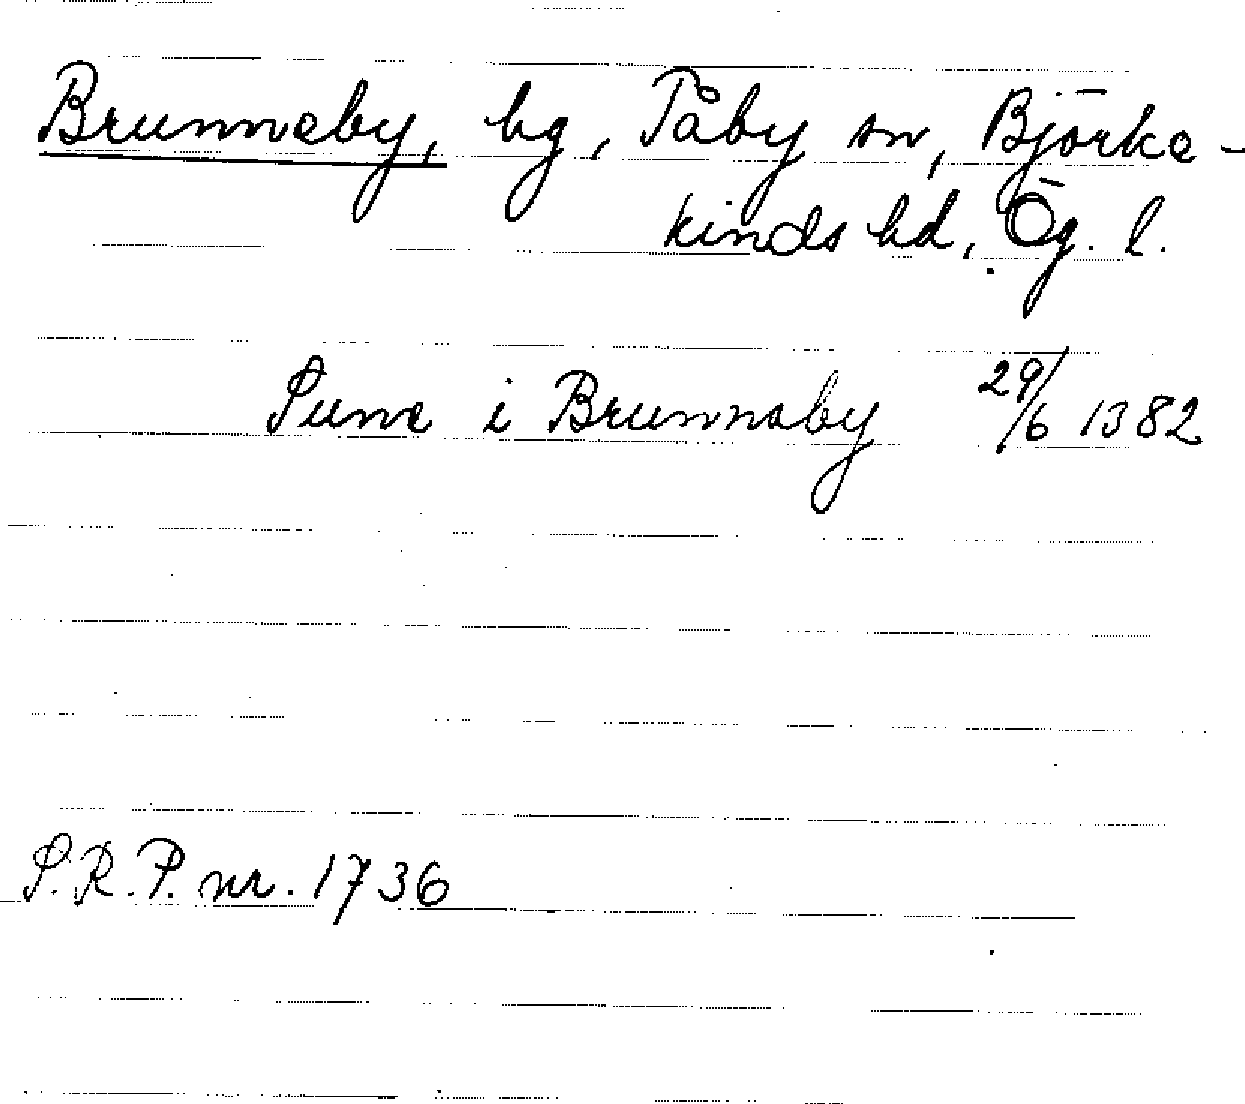 Brunneby, hg, Tåby sn, Björke-
kinds hd, Ög. l.
Sune i Brunnaby 29/6 1382
S.R.P. nr. 1736